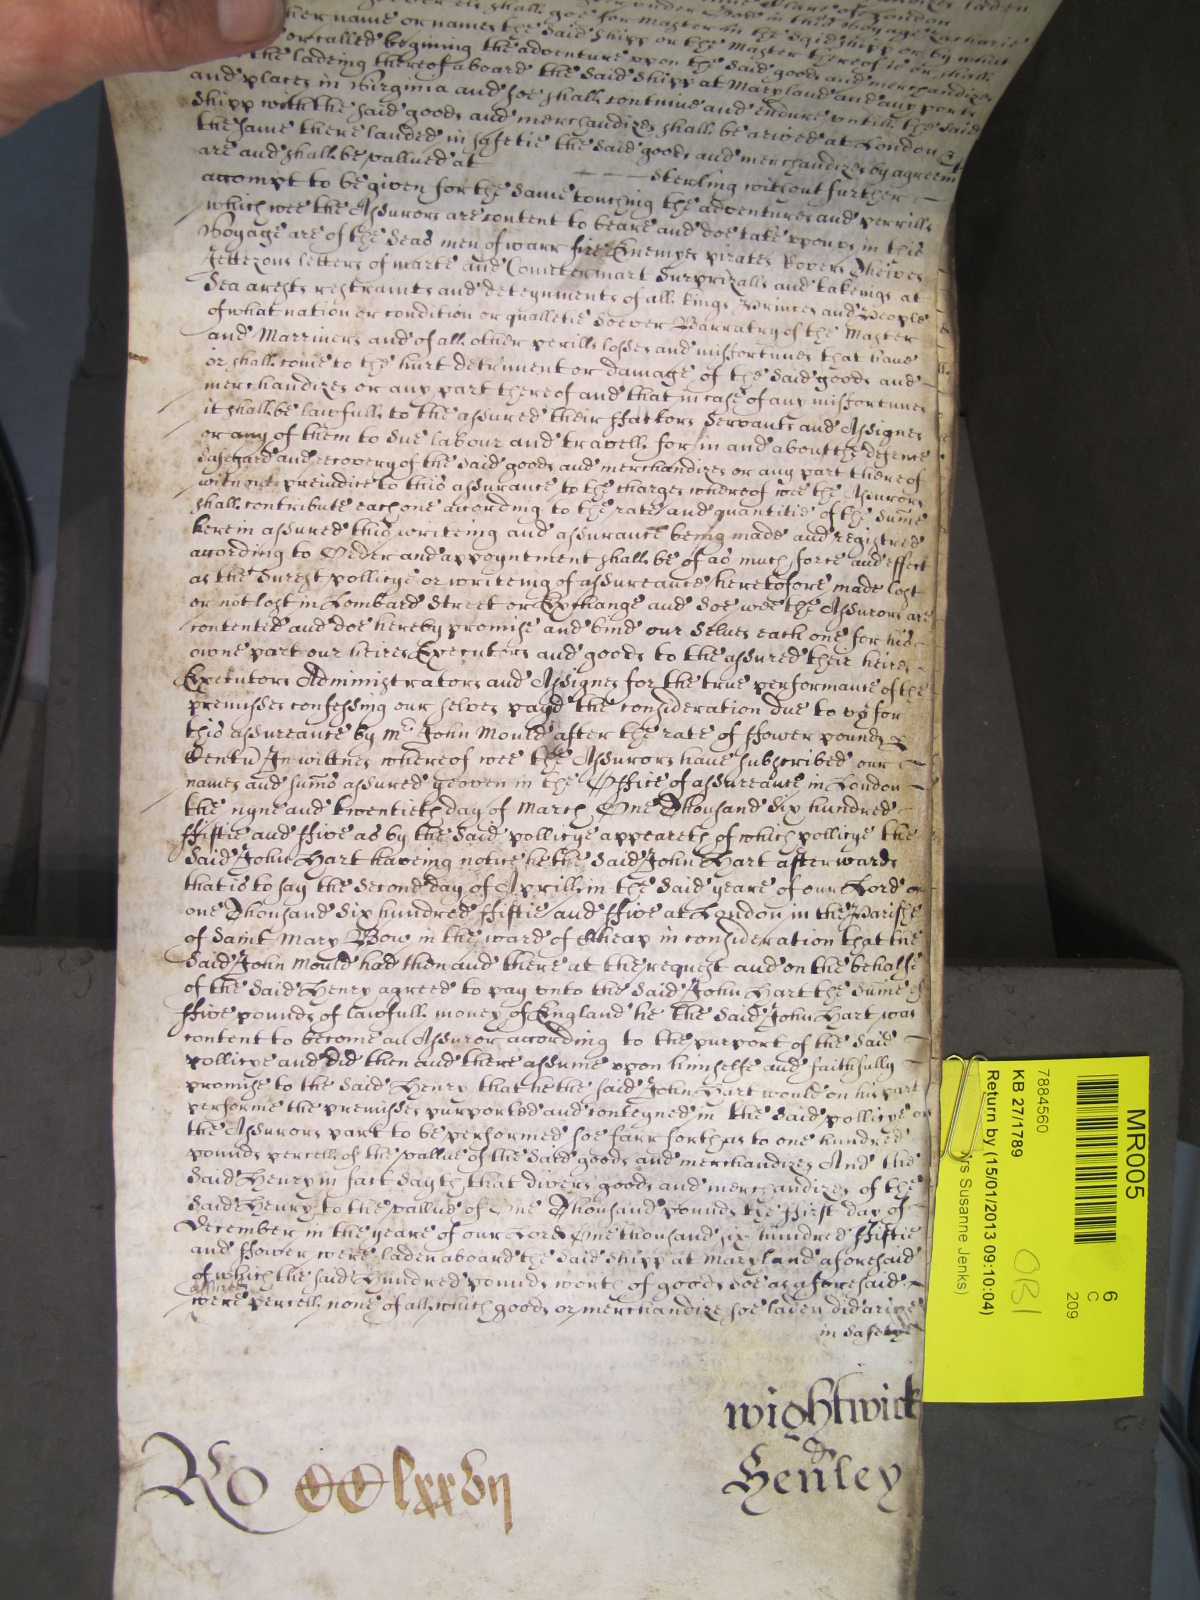 soever els shall goe for Master in the said shipp or by what
her name or names the said shipp or the Master thereof is or shall
or called begining the adventure upon the said goods and merchandizes
the ladeing thereof aboard the said shipp at Maryland and any ports
and places in Virginia and soe shall continue and endure untill the said
shipp with the said goods and merchandizes shall be arived at London &
the same there landed in safetie the said goods and merchandizes by agreemt
are and shall be vallued at sterling without further
accompt to be given for the same touching the adventures and perrills
which wee the Assurors are content to beare and doe take upon us in this
Voyage are of the seas men of warr fire Enemyes pirates Rovers Theives
Jettezons letters of marte and Countermart surprizalls and takeings at
sea arests restraints and deteynments of all kings Princes and People
of what nation or condition or qualletie soever Barratry of the Master
and Marriners and of all other perills losses and missfortunes that have
or shall come to the hurt detriment or damage of the said goods and
merchandizes or any part thereof and that in case of any missfortunes
it shall be lawfull to the assured their ffactors Servants and Assignes
or any of them to sue labour and travell for in and about the defence
safegard and recovery of the said goods and merchandizes or any part thereof
without prejudice to this assurance to the charges whereof wee the Assurors
shall contribute each one according to the rate and quantitie of the summe
herein assured this writeing and assurance being made and registred
according to Order and appoyntment shall be of as much force and effect
as the surest pollicye or writeing of assureance heretofore made lost
or not lost in Lombard Street or Exchange and soe wee the Assurors are
contented and doe hereby promise and bind our selves each one for his
owne part our heires Executors and goods to the assured their heires
Executors Administrators and Assignes for the true performance of the
premisses confessing our selves payd the consideration due to us for
this assureance by mr John Mould after the rate of ffower pounds p
Centu In wittnes whereof wee the Assurors have subscribed our
names and sums assured yeoven in the Office of assureance in London
the nyne and twentieth day of March One Thousand six hundred
ffiftie and ffive as by the said pollicye appeareth of which pollicye the
said John Hart haveing notice he the said John Hart afterwards
that is to say the second day of Aprill in the said yeare of our Lord
one Thousand six hundred ffiftie and ffive at London in the Parishe
of Saint Mary Bow in the ward of Cheap in consideration that the
said John Mould had then and there at the request and on the behalfe
of the said Henry agreed to pay unto the said John Hart the summe of
ffive pounds of lawfull money of England he the said John Hart was
content to become an Assuror according to the purport of the said
pollicye and did then and there assume upon himselfe and faithfully
promise to the said Henry that he the said John Hart would on his part
performe the premisses purported and conteyned in the said pollicye on
the Assurors part to be performed soe farr forth as to one hundred
pounds percell of the vallue of the said goods and merchandizes And the
said Henry in fact sayth that divers goods and merchandizes of the
said Henry to the vallue of One Thousand pounds the first day of
December in the yeare of our Lord One thousand six hundred ffiftie
and ffower were laden aboard the said shipp at Maryland aforesaid
of which the said hundred pounds worth of goods soe as aforesaid
assured
were percell none of all which goods or merchandize soe laden did arive
in safetye
wightwick
&
Henley
Ro CClxxvii
MR005
6
C
209
7884560
KB 27/1789
Return by (15/01/2013 09:10:04)
rs Susanne Jenks)
OB1